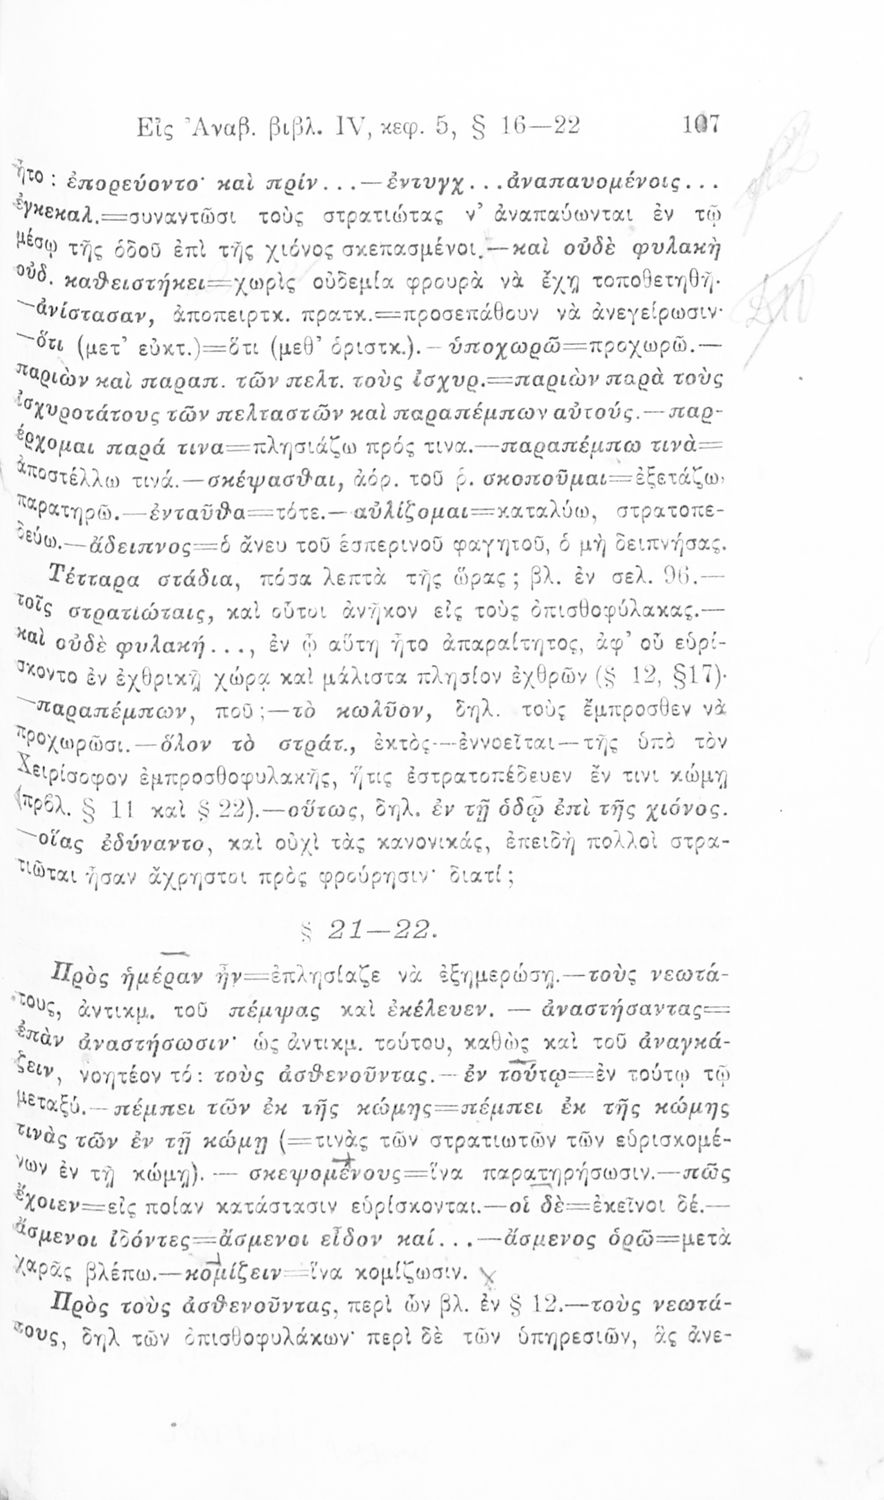 Εἰς Ἀναβ. βιβλ. IV, κεφ. 5, § 16—22 107
ἦτο : ἐπορεύοντο· καὶ πρίν... — ἐντυγχ...ἀναπαυομένοις...
ἐγκεκαλ.=συναντῶσι τοὺς στρατιώτας ν’ ἀναπαύωνται ἐν τῷ
μέσῳ τῆς ὁδοῦ ἐπὶ τῆς χιόνος σκεπασμένοι.—καὶ οὐδὲ φυλακὴ
οὐδ. καθειστήκει=χωρὶς οὐδεμία φρουρὰ νὰ ἔχῃ τοποθετηθῆ·
—ἀνίστασαν, ἀποπειρτκ. πρατκ.=προσεπάθουν νὰ ἀνεγείρωσιν·
—ὅτι (μετ’ εὐκτ.)=ὅτι (μεθ’ ὁριστκ.).—ὑποχωρῶ=προχωρῶ.—
παριὼν καὶ παραπ. τῶν πελτ. τοὺς ἰσχυρ.=παριὼν παρὰ τοὺς
ἰσχυροτάτους τῶν πελταστῶν καὶ παραπέμπων αὐτούς.—παρ-
έρχομαι παρά τινα=πλησιάζω πρός τινα.—παραπέμπω τινὰ=
ἀποστέλλω τινά.—σκέψασθαι, ἀόρ. τοῦ ρ. σκοποῦμαι=ἐξετάζω,
παρατηρῶ.—ἐνταῦθα=τότε.—αὐλίζομαι=καταλύω, στρατοπε-
δεύω.—ἄδειπνος=ὁ ἄνευ τοῦ ἑσπερινοῦ φαγητοῦ, ὁ μὴ δειπνήσας.
Τέτταρα στάδια, πόσα λεπτὰ τῆς ὥρας ; βλ. ἐν σελ. 96.—
τοῖς στρατιώταις, καὶ οὗτοι ἀνῆκον εἰς τοὺς ὀπισθοφύλακας.—
καὶ οὐδὲ φυλακή..., ἐν ᾧ αὕτη ἦτο ἀπαραίτητος, ἀφ’ οὗ εὑρί-
σκοντο ἐν ἐχθρικῇ χώρᾳ καὶ μάλιστα πλησίον ἐχθρῶν (§ 12, §17)·
—παραπέμπων, ποῦ ;—τὸ κωλῦον, δηλ. τοὺς ἔμπροσθεν νὰ
προχωρῶσι.—ὅλον τὸ στράτ., ἐκτὸς—ἐννοεῖται—τῆς ὑπὸ τὸν
Χειρίσοφον ἐμπροσθοφυλακῆς, ἥτις ἐστρατοπέδευεν ἔν τινι κώμῃ
(πρβλ. § 11 καὶ § 22).—οὕτως, δηλ. ἐν τῇ ὁδῷ ἐπὶ τῆς χιόνος.
—οἵας ἐδύναντο, καὶ οὐχὶ τὰς κανονικάς, ἐπειδὴ πολλοὶ στρα-
τιῶται ἦσαν ἄχρηστοι πρὸς φρούρησιν· διατί ;
§ 21—22.
Πρὸς ἡμέραν ἦν=ἐπλησίαζε νὰ ἐξημερώσῃ.—τοὺς νεωτά-
τους, ἀντικμ. τοῦ πέμψας καὶ ἐκέλευεν. — ἀναστήσαντας=
ἐπὰν ἀναστήσωσιν· ὡς ἀντικμ. τούτου, καθὼς καὶ τοῦ ἀναγκά-
ζειν, νοητέον τό : τοὺς ἀσθενοῦντας.—ἐν τούτῳ=ἐν τούτῳ τῷ
μεταξύ.—πέμπει τῶν ἐκ τῆς κώμης=πέμπει ἐκ τῆς κώμης
τινὰς τῶν ἐν τῇ κώμῃ (=τινὰς τῶν στρατιωτῶν τῶν εὑρισκομέ-
νων ἐν τῇ κώμῃ). — σκεψομένους=ἵνα παρατηρήσωσιν.—πῶς
ἔχοιεν=εἰς ποίαν κατάστασιν εὑρίσκονται.—οἱ δὲ=ἐκεῖνοι δέ.—
ἄσμενοι ἰδόντες=ἄσμενοι εἶδον καί...—ἄσμενος ὁρῶ=μετὰ
χαρᾶς βλέπω.—κομίζειν=ἵνα κομίζωσιν.
Πρὸς τοὺς ἀσθενοῦντας, περὶ ὧν βλ. ἐν § 12.—τοὺς νεωτά-
τους, δηλ τῶν ὀπισθοφυλάκων· περὶ δὲ τῶν ὑπηρεσιῶν, ἃς ἀνε-